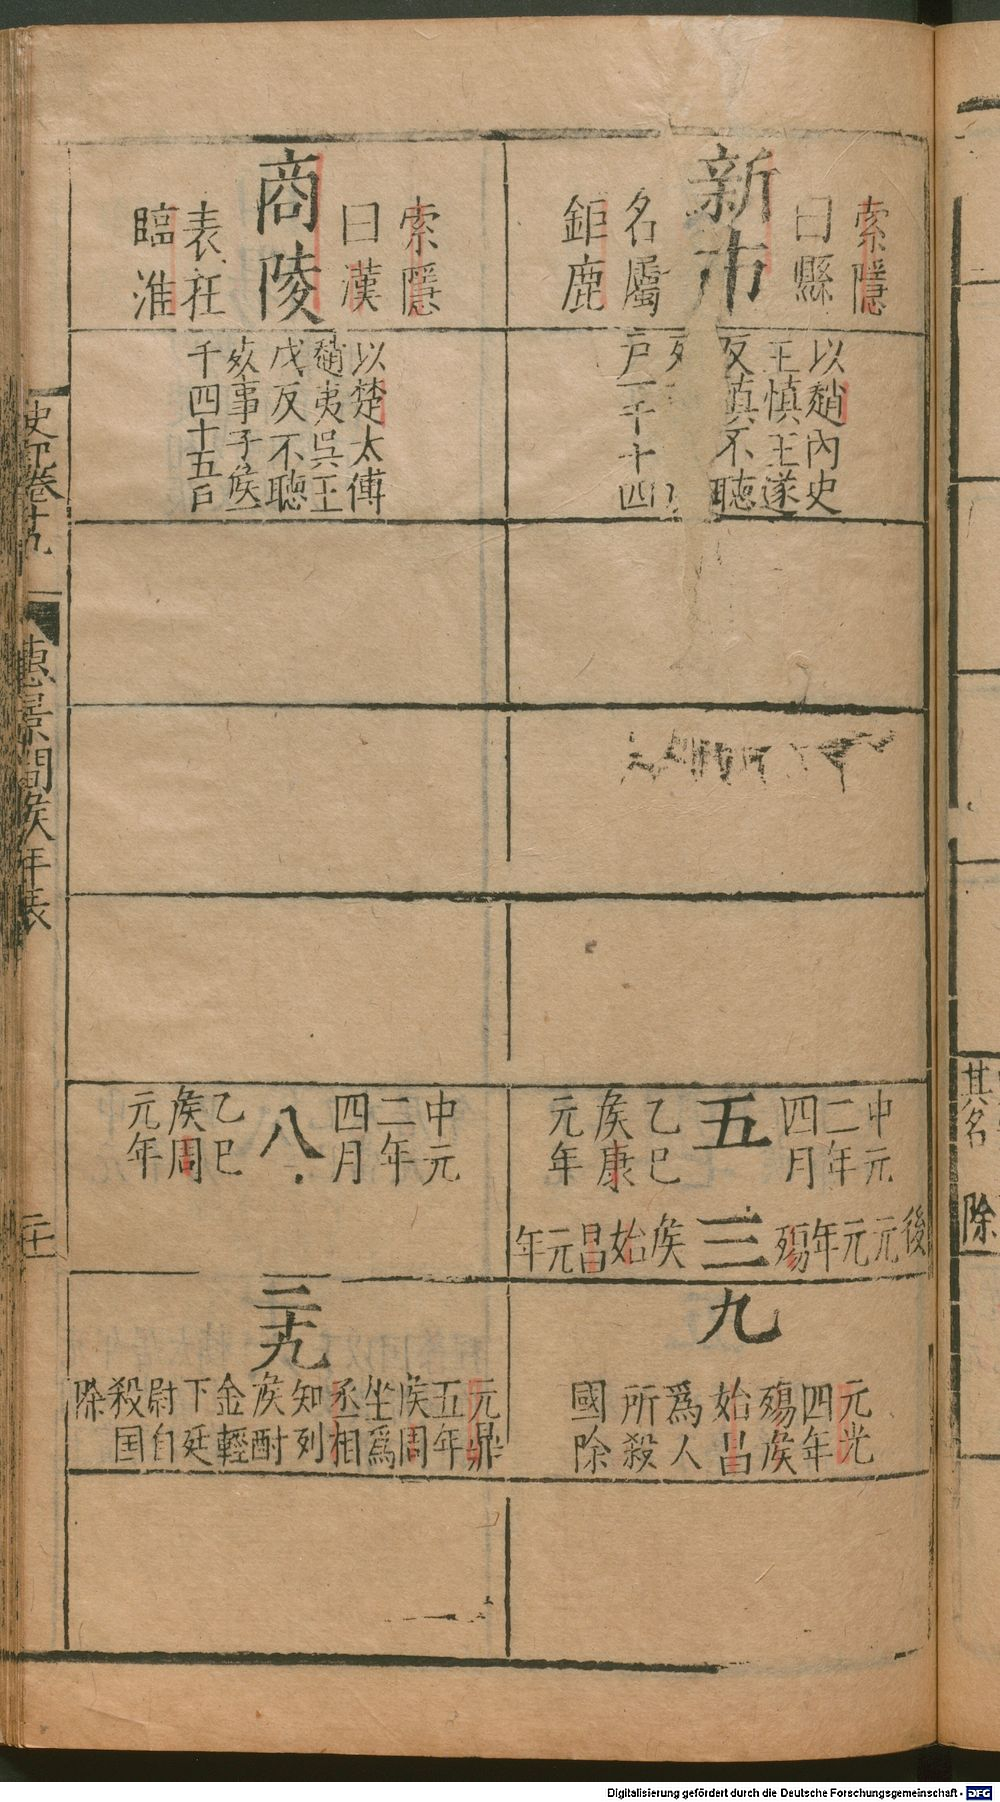 索隱
曰縣
新市
名屬
鉅鹿
以趙內史
王慎王遂
反真不聽
戶一千十四
中元
二年
四月
五
乙巳
侯康
元年
後
元
元
年
殤
三
侯
始
昌
元
年
九
元光
四年
殤侯
始昌
爲人
所殺
國除
索隱
曰漢
商陵
表在
臨淮
以楚太傅
趙夷吳王
戊反不聽
死事子侯
千四十五戶
中元
二年
四月
八
乙巳
侯周
元年
二十九
元鼎
五年
侯周
坐爲
丞相
知列
侯酎
金輕
下廷
尉自
殺国
除
史記卷十九
惠景間侯年表
二十一
其名
除
Digitalisierung gefördert durch die Deutsche Forschungsgemeinschaft - DFG